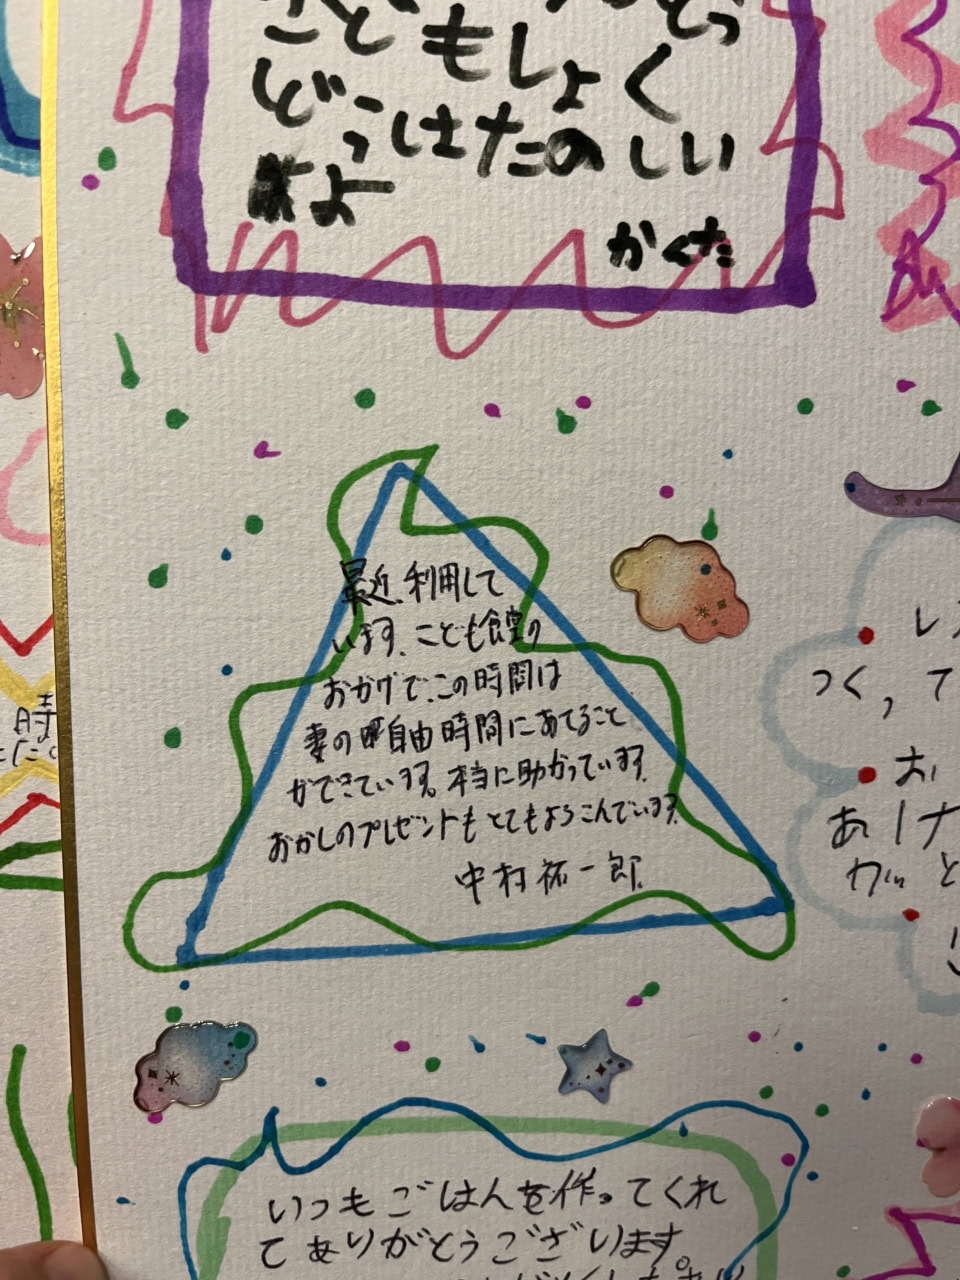 こどもしょく
どうはたのしい
よー
かくた
最近、利用して
います。こども食堂の
おかげで、この時間は
妻の自由時間にあてること
ができています。本当に助かっています。
おかしのプレゼントもとてもよろこんでいます。
中村祐一郎
つく，て
お
あけ
が と
時
いつもごはんを作ってくれ
てありがとうございます